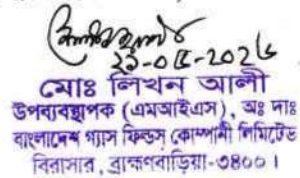 ২১-০৫-২০২৬
মোঃ লিখন আলী
উপব্যবস্থাপক (এমআইএস), অঃ দাঃ
বাংলাদেশ গ্যাস ফিল্ডস্ কোম্পানী লিমিটেড
বিরাসার, ব্রাহ্মণবাড়িয়া-৩৪০০।